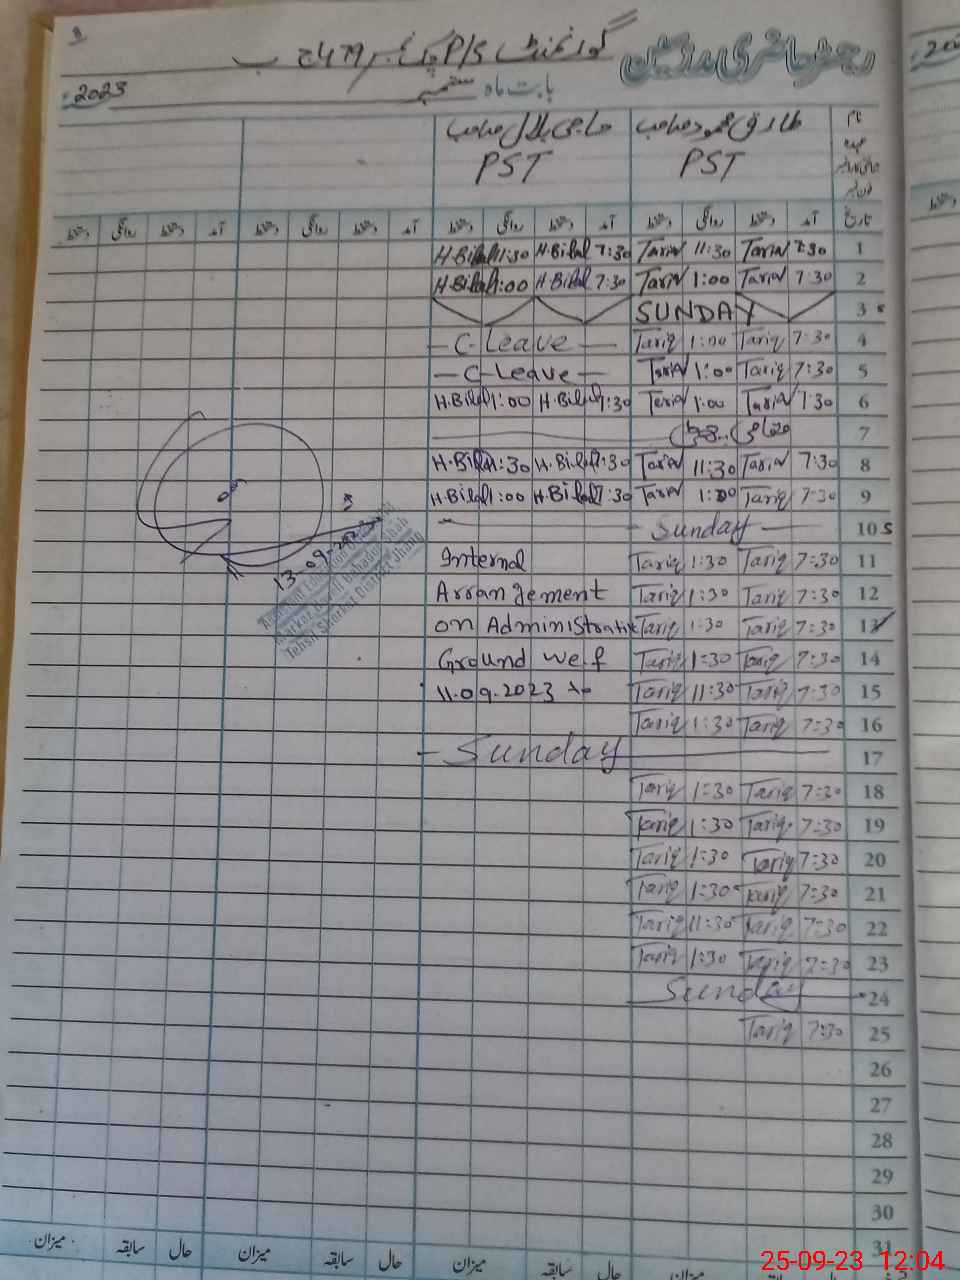 رجسٹر حاضری مدرسین
گورنمنٹ P/S چک نمبر 479 ج ب
بابت ماہ ستمبر 2023
نام طارق محمود صاحب حاجی بلال صاحب
عہدہ PST PST
تاریخ آمد دستخط روانگی دستخط آمد دستخط روانگی دستخط آمد دستخط روانگی دستخط آمد دستخط روانگی دستخط
H.Bilal 1:30 H.Bilal 7:30 Tariq 11:30 Tariq 7:30 1
H.Bilal 1:00 H.Bilal 7:30 Tariq 1:00 Tariq 7:30 2
SUNDAY 3 s
- C-Leave - Tariq 1:00 Tariq 7:30 4
- C-Leave - Tariq 1:00 Tariq 7:30 5
H.Bilal 1:00 H.Bilal 7:30 Tariq 1:00 Tariq 7:30 6
7
H.Bilal 1:30 H.Bilal 7:30 Tariq 11:30 Tariq 7:30 8
H.Bilal 1:00 H.Bilal 7:30 Tariq 1:00 Tariq 7:30 9
- Sunday - 10 s
Internal Tariq 1:30 Tariq 7:30 11
Arrangement Tariq 1:30 Tariq 7:30 12
on Administrative Tariq 1:30 Tariq 7:30 13
Ground w.e.f Tariq 1:30 Tariq 7:30 14
11.09.2023 to Tariq 11:30 Tariq 7:30 15
Tariq 1:30 Tariq 7:30 16
- Sunday 17
Tariq 1:30 Tariq 7:30 18
Tariq 1:30 Tariq 7:30 19
Tariq 1:30 Tariq 7:30 20
Tariq 1:30 Tariq 7:30 21
Tariq 11:30 Tariq 7:30 22
Tariq 1:30 Tariq 7:30 23
Sunday 24
Tariq 7:30 25
26
27
28
29
30
31
13-09-2023
Assistant Education Officer
Markaz Bahadur Shah
Tehsil Shorkot District Jhang
حال سابقہ میزان حال سابقہ میزان حال سابقہ میزان میزان
25-09-23 12:04